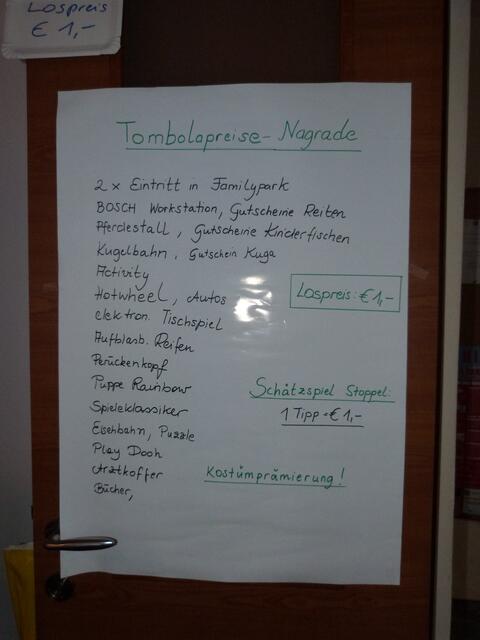 Lospreis
€ 1,-
Tombolapreise - Nagrade
2 x Eintritt in Familypark
BOSCH Workstation, Gutscheine Reiten
Pferdestall, Gutscheine Kinderfischen
Kugelbahn, Gutschein Kuga
Activity
Hotwheel, Autos
Lospreis: € 1,-
elektron. Tischspiel
Aufblasb. Reifen
Perückenkopf
Puppe Rainbow
Schätzspiel Stoppel:
Spieleklassiker
1 Tipp = € 1,-
Eisenbahn, Puzzle
Play Dooh
Arztkoffer
Kostümprämierung!
Bücher,